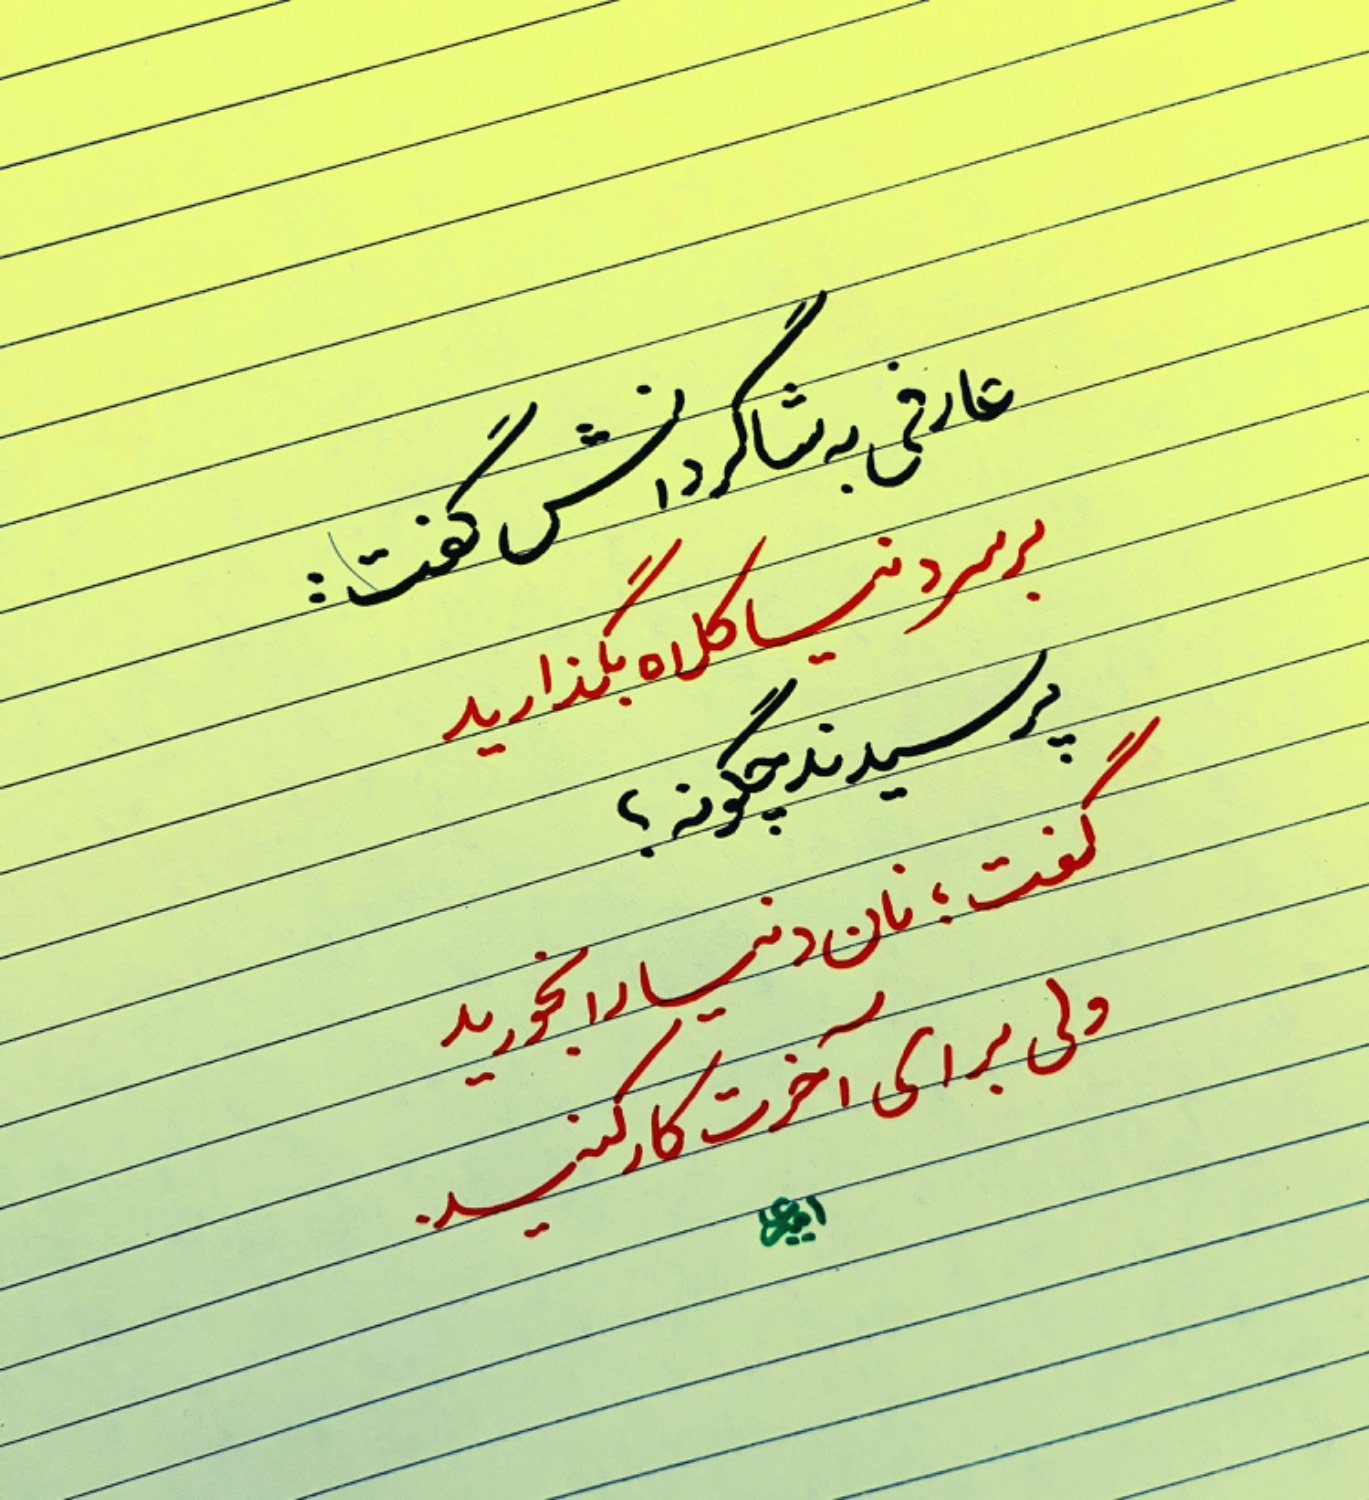 عارفی به شاگردانش گفت :
بر سر دنیا کلاه بگذارید
پرسیدند چگونه ؟
گفت ؛ نان دنیا را بخورید
ولی برای آخرت کار کنید.